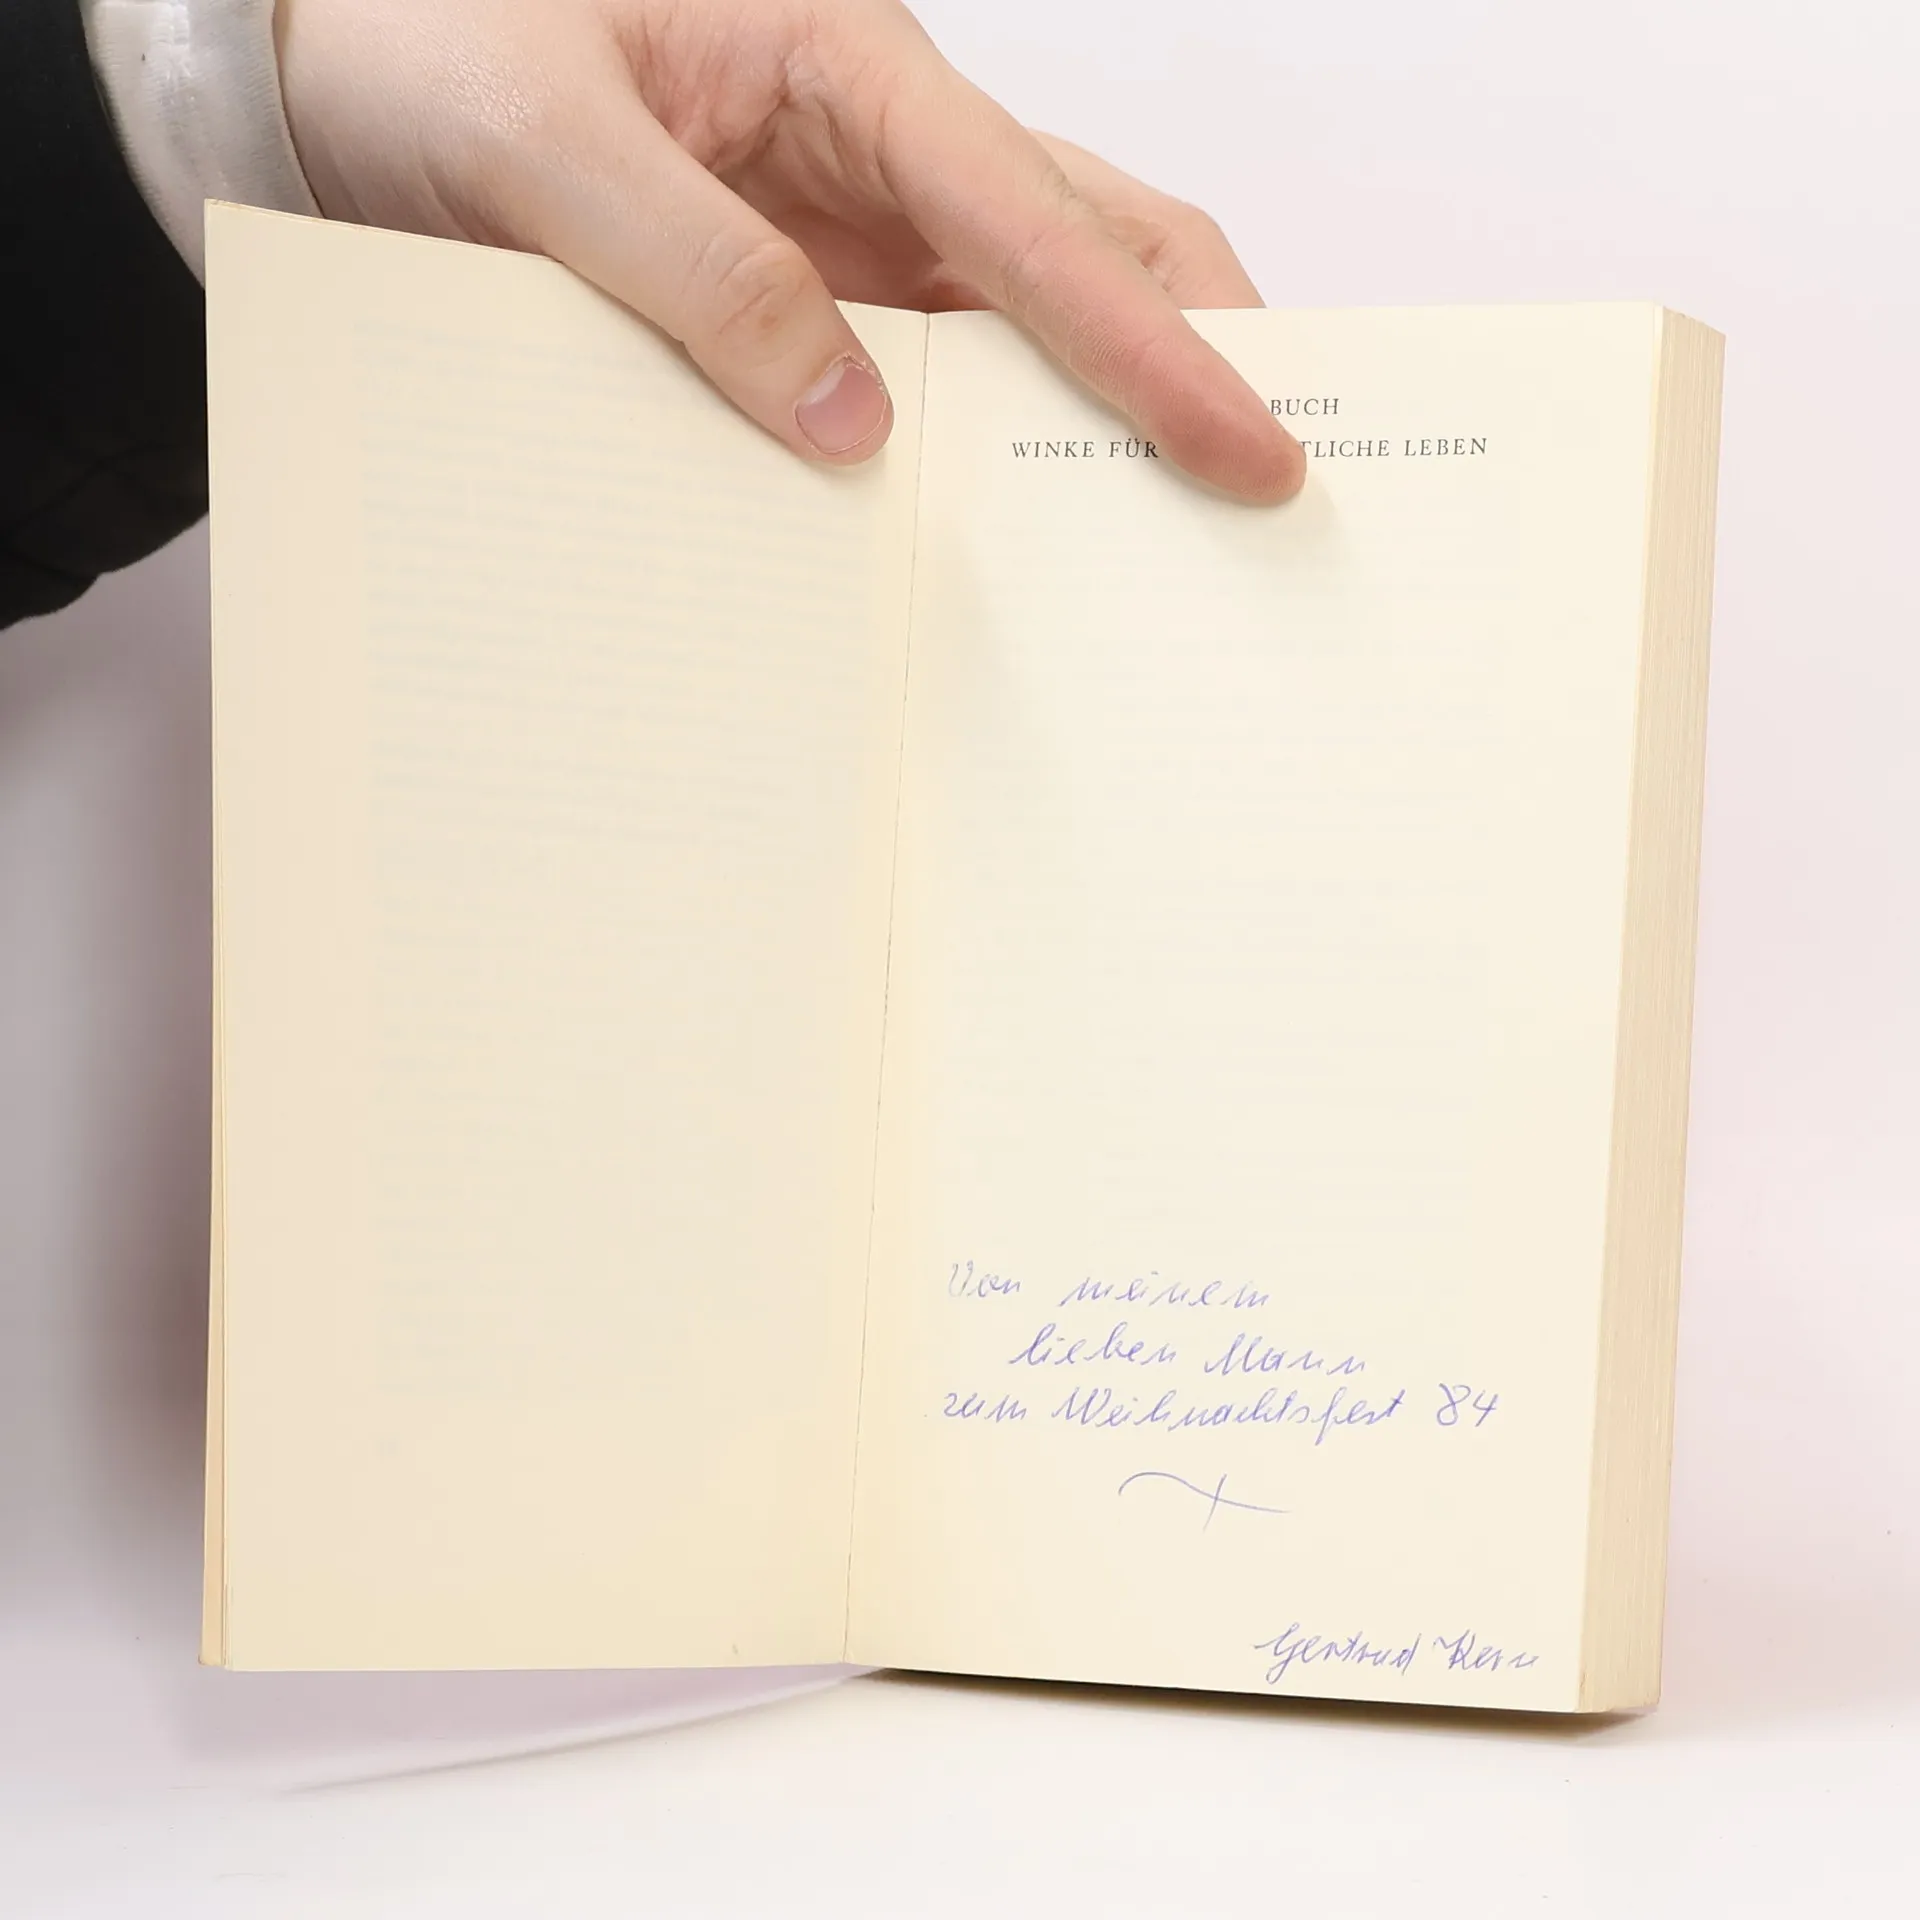 BUCH
WINKE FÜR TLICHE LEBEN
Von meinem
lieben Mann
zum Weihnachtsfest 84
Gertrud Kern